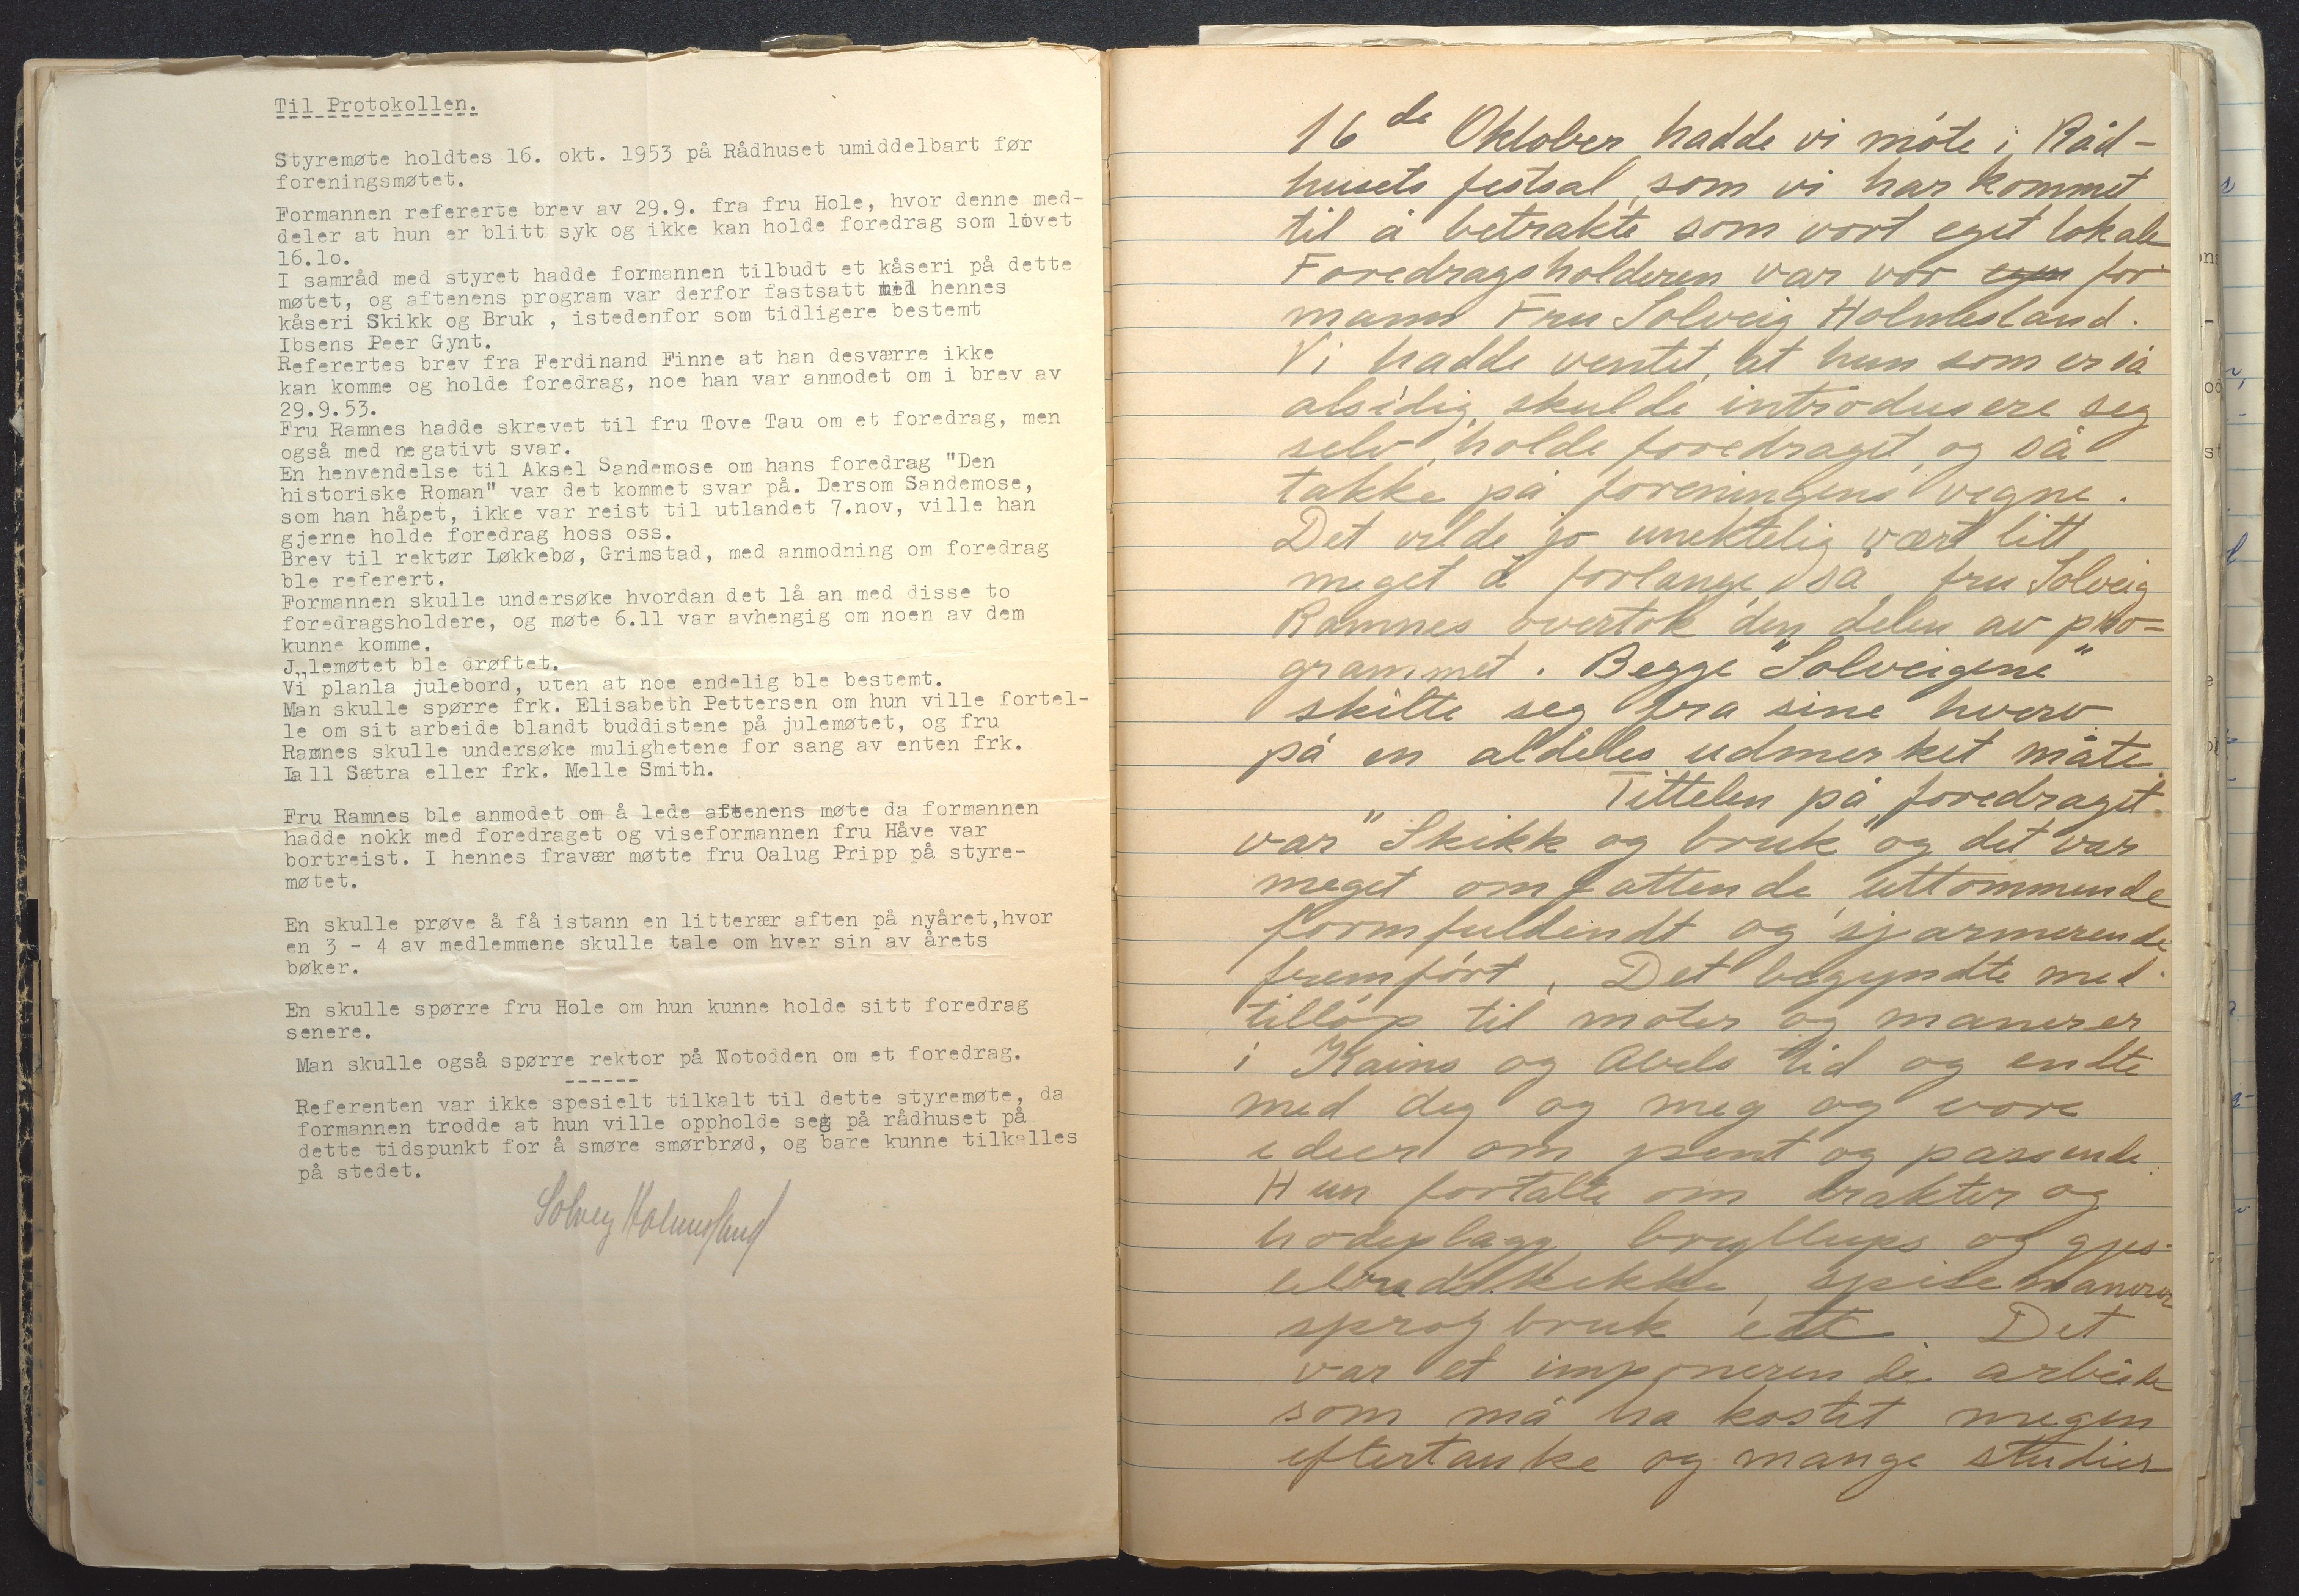 Til Protokollen.
Styremøte holdtes 16. okt. 1953 på Rådhuset umiddelbart før
foreningsmøtet.
Formannen refererte brev av 29.9. fra fru Hole, hvor denne med-
deler at hun er blitt syk og ikke kan holde foredrag som lovet
16.1o.
I samråd med styret hadde formannen tilbudt et kåseri på dette
møtet, og aftenens program var derfor fastsatt til hennes
kåseri Skikk og Bruk , istedenfor som tidligere bestemt
Ibsens Peer Gynt.
Referertes brev fra Ferdinand Finne at han desværre ikke
kan komme og holde foredrag, noe han var anmodet om i brev av
29.9.53.
Fru Ramnes hadde skrevet til fru Tove Tau om et foredrag, men
også med negativt svar.
En henvendelse til Aksel Sandemose om hans foredrag "Den
historiske Roman" var det kommet svar på. Dersom Sandemose,
som han håpet, ikke var reist til utlandet 7.nov, ville han
gjerne holde foredrag hoss oss.
Brev til rektør Løkkebø, Grimstad, med anmodning om foredrag
ble referert.
Formannen skulle undersøke hvordan det lå an med disse to
foredragsholdere, og møte 6.11 var avhengig om noen av dem
kunne komme.
J„lemøtet ble drøftet.
Vi planla julebord, uten at noe endelig ble bestemt.
Man skulle spørre frk. Elisabeth Pettersen om hun ville fortel-
le om sit arbeide blandt buddistene på julemøtet, og fru
Ramnes skulle undersøke mulighetene for sang av enten frk.
Lall Sætra eller frk. Melle Smith.
Fru Ramnes ble anmodet om å lede aftenens møte da formannen
hadde nokk med foredraget og viseformannen fru Håve var
bortreist. I hennes fravær møtte fru Oalug Pripp på styre-
møtet.
En skulle prøve å få istann en litterær aften på nyåret,hvor
en 3 - 4 av medlemmene skulle tale om hver sin av årets
bøker.
En skulle spørre fru Hole om hun kunne holde sitt foredrag
senere.
Man skulle også spørre rektor på Notodden om et foredrag.
------
Referenten var ikke spesielt tilkalt til dette styremøte, da
formannen trodde at hun ville oppholde seg på rådhuset på
dette tidspunkt for å smøre smørbrød, og bare kunne tilkalles
på stedet.
Solveig Holmesland
16de Oktober hadde vi møte i Råd-
husets festsal, som vi har kommet
til å betrakte som vort eget lokale
Foredragsholderen var vor egen for
mann Fru Solveig Holmesland.
Vi hadde ventet, at hun som er så
alsidig, skulde introdusere seg
selv, holde foredraget, og så
takke på foreningens vegne.
Det vilde jo unektelig vært litt
meget å forlange, så fru Solveig
Ramnes overtok den delen av pro=
grammet. Begge "Solveigene"
skilte seg fra sine hverv
på en aldeles udmerket måte.
Tittelen på foredraget
var "Skikk og bruk" og det var
meget omfattende, uttømmende
formfuldendt og sjarmerende
fremført. Det begyndte med
tilløp til moter og manerer
i Kains og Abels tid og endte
med deg og meg og vore
ideer om pent og passende.
Hun fortalte om drakter og
hodeplagg, bryllups og gjes-
tebudskikke, spisemanerer
sprogbruk ett. Det
var et imponerende arbeide
som må ha kostet megen
eftertanke og mange studier